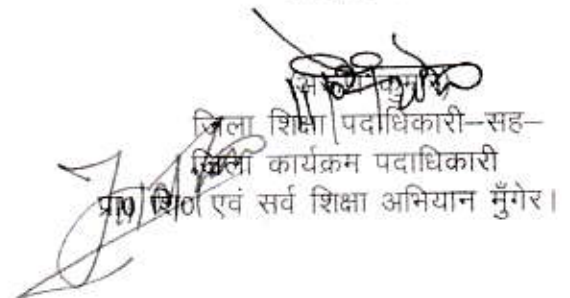 कुमार)
जिला शिक्षा पदाधिकारी–सह–
जिला कार्यक्रम पदाधिकारी
प्रा0 शि0 एवं सर्व शिक्षा अभियान मुँगेर।